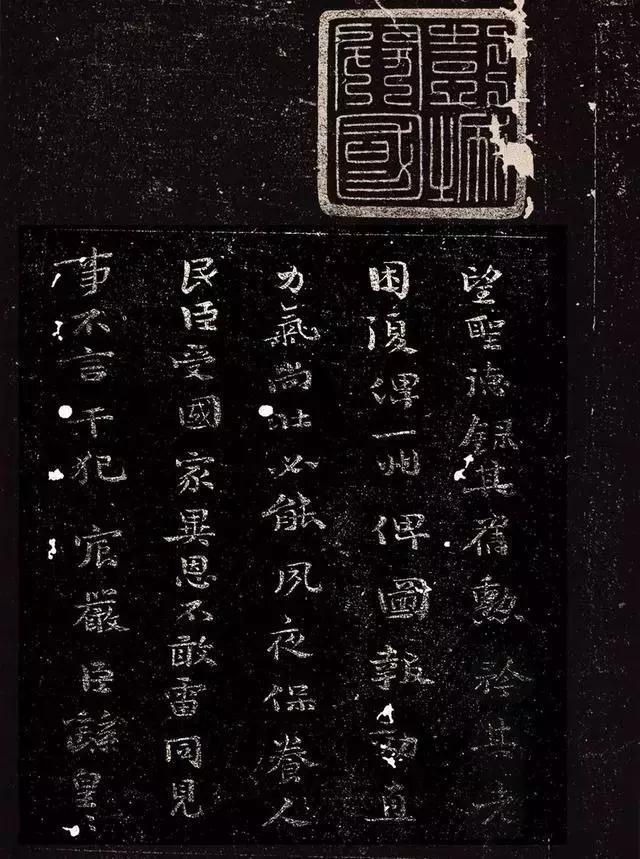 彭城
國
望聖德録其舊勲矜其老
困復俾一州俾圖報効直
力氣尚壯必能夙夜保養人
民臣受國家異恩不敢雷同見
事不言干犯宸嚴臣繇皇〻